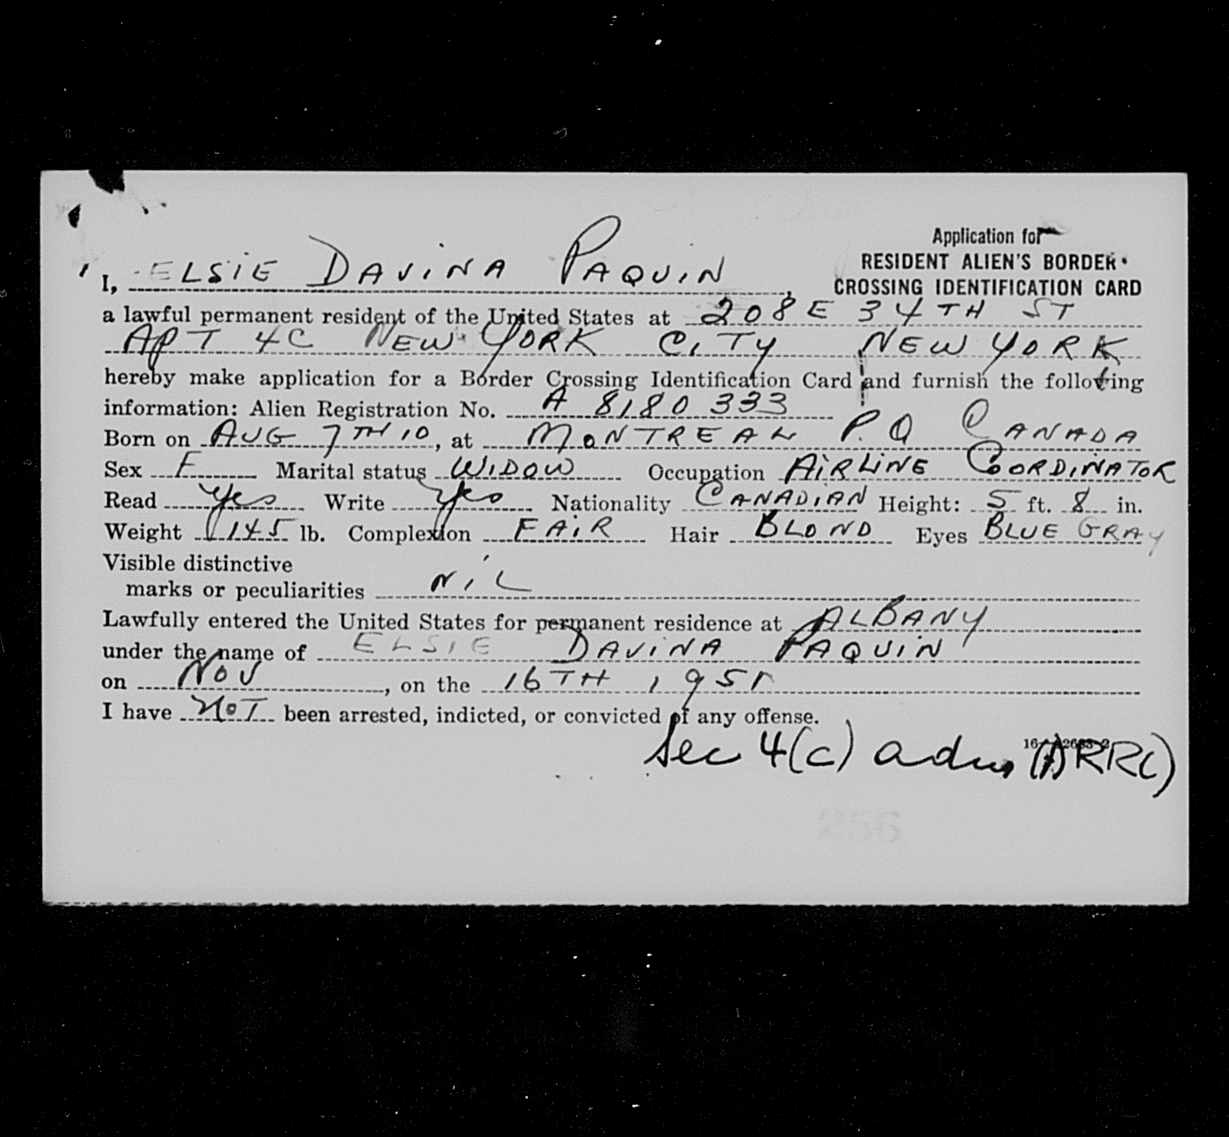 Application for
RESIDENT ALIEN'S BORDER
CROSSING IDENTIFICATION CARD
I, ELSIE DAVINA PAQUIN,
a lawful permanent resident of the United States at 208 E 34TH ST
APT 4C NEW YORK CITY NEW YORK
hereby make application for a Border Crossing Identification Card and furnish the following
information: Alien Registration No. A 8180 333
Born on AUG 7TH 10, at MONTREAL P.Q CANADA
Sex F Marital status WIDOW Occupation AIRLINE COORDINATOR
Read Yes Write Yes Nationality CANADIAN Height: 5 ft. 8 in.
Weight 145 lb. Complexion FAIR Hair BLOND Eyes BLUE GRAY
Visible distinctive
marks or peculiarities NIL
Lawfully entered the United States for permanent residence at ALBANY
under the name of ELSIE DAVINA PAQUIN
on NOV, on the 16TH 1951
I have NOT been arrested, indicted, or convicted of any offense.
Sec 4(c) adm (ARRC)
256